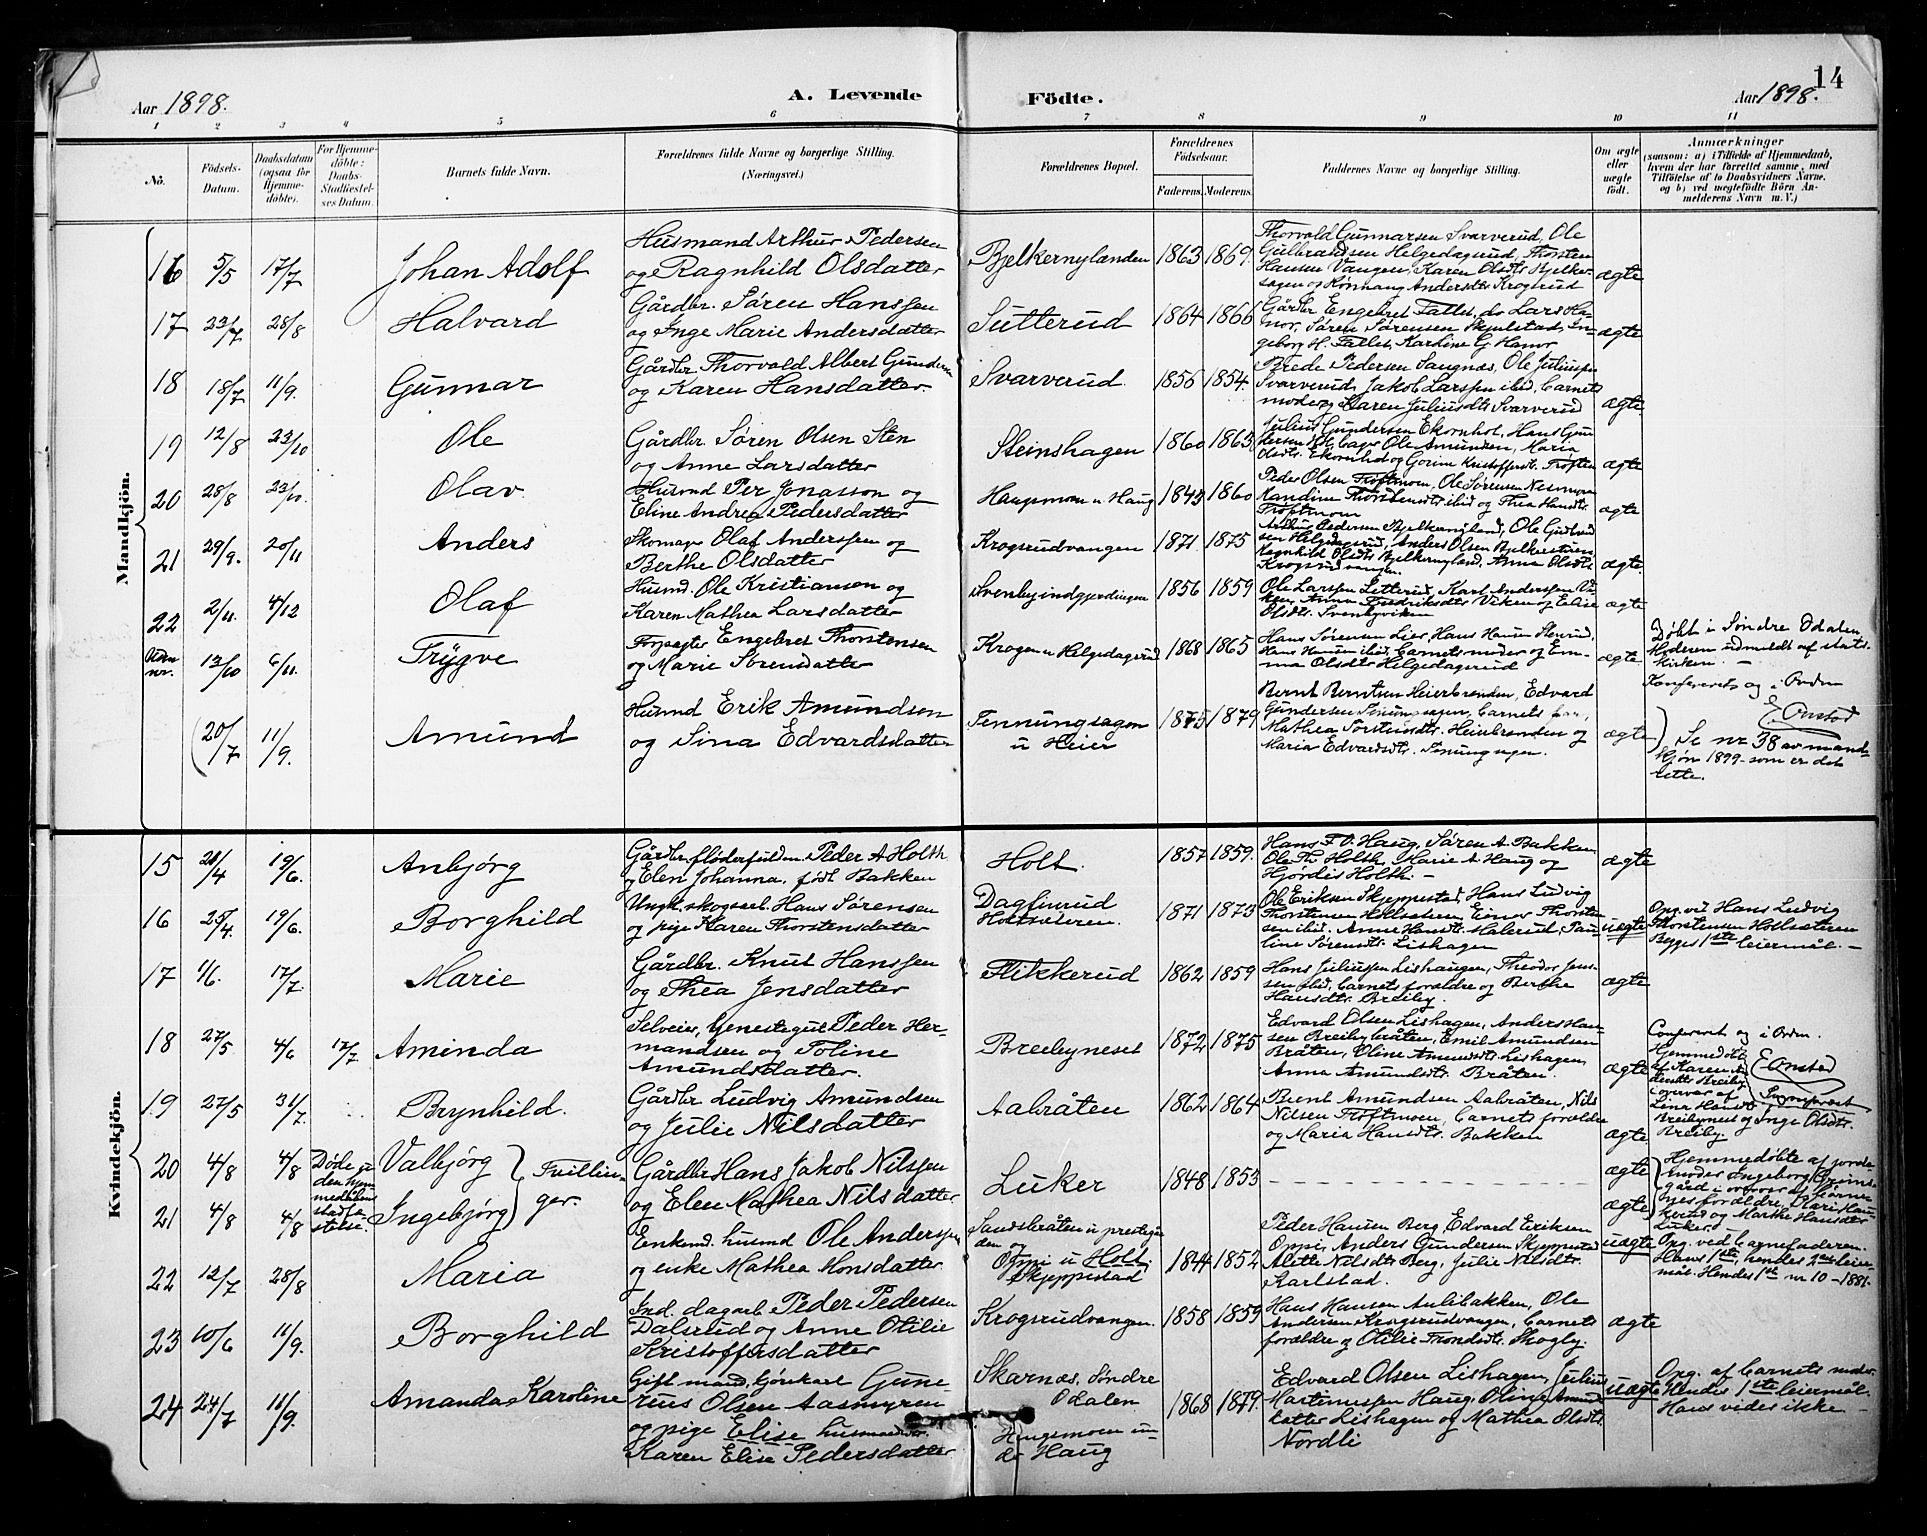 14
Aar 1898.
A. Levende Födte.
Aar 1898.
1 2 3 4 5 6 7 8 9 10 11
No.
Födsels-
Datum.
Daabsdatum
(ogsaa for
Hjemme-
döbte).
For Hjemme-
döbte:
Daabs-
Stadfæstel-
ses Datum.
Barnets fulde Navn.
Forældrenes fulde Navne og borgerlige Stilling.
(Næringsvei.)
Forældrenes Bopæl.
Forældrenes
Födselsaar.
Faderens. Moderens.
Faddernes Navne og borgerlige Stilling.
Om ægte
eller
uægte
födt.
Anmærkninger
(saasom: a) i Tilfælde af Hjemmedaab,
hvem der har forrettet samme, med
Tilföielse af to Daabsvidners Navne,
og b) ved uegtefödte Börn An-
melderens Navn m. V.)
Mandkjön.
16 5/5 17/7 Johan Adolf
Husmand Arthur Pedersen
og Ragnhild Olsdatter
Bjelkernylænden 1863 1869.
Thorvald Gunnarsen Svarverud, Ole
Gulbrandsen Helgedagsrud, Thorsten
Hansen Vangen, Karen Olsdtr Bjelker-
sagen og Andersdtr Krogsrud
ægte
17 23/7 28/8 Halvard
Gårdbr. Søren Hanssen
og Inge Marie Andersdatter
Sutterud 1864 1866
Gårdbr Engebret Fallet, do Lars Ha-
mor, Søren Sørensen Skjulstad, In-
geborg H. Fallet, Karline G. Hamor
ægte
18 18/7 11/9. Gunnar
Gårdbr Thorvald Albert Gundersen
og Karen Hansdatter.
Svarverud. 1856 1854.
Brede Pedersen Sangnæs, Ole Juliussen
Svarverud, Jakob Larssen ibid, Barnets
moder og Karen Juliusdtr Svarverud
ægte
19 12/8 23/10 Ole
Gårdbr Søren Olsen Sten
og Anne Larsdatter
Steinshagen 1860 1863
Julius Gundersen Ekornhol, Hans Gun-
dersen Ole Amundsen, Maria
Olsdtr. Ekornhol og Gorine Kristoffersdtr. Trøften
ægte
20 28/8 23/10. Olav
Husmd Per Jonasson og
Eline Andrea Pedersdatter
Haugsmoen u Haug 1843 1860
Peder Olsen Trøftmoen, Ole Sørensen Nesmoen
Kandine Thorstensdtr ibid og Thea Hansdtr
Trøftmoen
ægte
21 29/9. 20/11 Anders
Skomager Olaf Anderssen og
Berthe Olsdatter
Krogsrudvangen 1871. 1875
Arthur Pedersen Bjelkernyland, Ole Gulbrand
sen Helgedagsrud, Anders Olsen Bjelkerstuen
Ragnhild Olsdtr Bjelkernyland, Anna Olsdtr
Krogsrudvangen.
ægte.
22 2/11. 4/12 Olaf
Husmd. Ole Kristiansen og
Karen Mathea Larsdatter
Svenbyindgjerdingen 1856 1859
Ole Larssen Setterud, Karl Anderssen Vi-
ken, Anna Fredriksdtr Viken og Elise
Olsdtr. Svenbyviken
ægte
Uden
nr. 13/10 6/11. Trÿgve
Forpagter Engebret Thorstensen
og Marie Sørensdatter
Krogen u Helgedagsrud 1868 1865
Hans Sørensen Lier, Hans Hansen Stenrud,
Hans Hansen ibid, Barnets moder og Em-
ma Olsdtr Helgedagsrud
ægte
Døbt i Søndre Odalen,
Moderen udmeldt af stats-
kirken. —
Konfereret og i Orden
E. Onstad
(20/7 11/9. Amund
Husmd Erik Amundsen
og Sina Edvardsdatter
Tennungsagen
u Heier
1875 1879
Bernt Berntsen Heierbrenden, Edvard
Gundersen Tenungsagen, Barnets far,
Mathea Torstensdtr. Heierbrenden og
Maria Edvardsdtr. Tenungsagen.
ægte
) Se nr 38 av mand-
kjøn 1899 - som er det
rette.
Kvindekjön.
15 28/4 19/6. Anbjørg
Gårdbr. fløderfulden. Peder A. Holth
og Elen Johanna, født Bakken
Holt. 1857 1859.
Hans F. O. Haug, Søren A. Bakken
Ole Th. Holth, Marie A. Haug og
Hjørdis Holth. —
ægte
16 25/4. 19/6. Borghild
Ungk. skogsarb. Hans Sørensen
og pige Karen Thorstensdatter
Daglinrud
Holtsæteren.
1871 1873
Ole Eriksen Skjeppestad, Hans Ludvig
Thorstensen Holtsæteren, Einar Thorsten-
sen ibid. Anne Hansdtr. Malerud, Pau-
line Sørensdtr. Lishagen
uægte
Opg. ved Hans Ludvig
Thorstensen Holtsæteren
Begges 1ste leiermål. —
17 1/6. 17/7. Marie
Gårdbr. Knut Hanssen
og Thea Jensdatter
Flikkerud 1862 1859
Hans Juliussen Lishaugen, Theodor Jens-
sen ibid, Barnets forældre og Berthe
Hansdtr. Breiby.
ægte
18 27/5 4/6 17/7 Aminda
Selveier, Peder Her-
mandsen og Toline
Amundsdatter.
Breibyneset 1872 1875
Edvard Olsen Lishagen, Anders Han-
sen Breibybråten, Emil Amundsen
Bråten, Oline Amundsdtr Lishagen,
Anna Amundsdtr. Bråten.
ægte
Confereret og i Orden.
E. Onstad
Hjemmedøbt
af Karen
Breiby
i nærvær af
Lina Hansdtr
Breibyneset og Inge Olsdtr.
Breiby.
19 27/5 31/7. Brynhild.
Gårdbr Ludvig Amundsen
og Julie Nilsdatter
Aabråten 1862 1864
Bernt Amundsen Aabråten, Nils
Nilsen Trøftmoen, Barnets forældre
og Maria Hansdtr. Bakken
ægte
20 4/8 4/8 Døde
Valbjørg
21 4/8 4/8
Ingebjørg
} Tvillin-
ger.
Gårdbr Hans Jakob Nilssen
og Elen Mathea Nilsdatter
Luker 1848 1853
— — — — — —
ægte
ægte
Hjemmedøbte af jorde-
moder Ingeborg Grøns-
gård i nærvær af børne-
nes forældre, Kari Hau-
kerud og Marthe Hansdtr
Luker.
22 12/7 28/8 Maria
Enkemd. husmd Ole Anderssen
og enke Mathea Monsdatter
Sandsbråten u prestegår-
den og
Oppi u Holt,
Skjeppestad
1844 1852
Peder Hansen Berg, Edvard Eriksen
Oppi, Anders Gundersen Skjeppestad
Alette Nilsdtr Berg, Julie Nilsdtr.
Karlstad.
uægte
Opg. ved Bagnefaderen.
Hans 1ste, hendes 2net leier-
mål. Hendes 1st nr 10 - 1881.
23 10/6 11/9. Borghild
Ind. dagarb. Peder Pedersen
Dalsrud og Anne Otilie
Kristoffersdatter
Krogsrudvangen. 1858 1859
Hans Hansen Aulibakken, Ole
Andersen Krogsrudvangen, Barnets
forældre og Otilie Trondsdtr. Skogly.
ægte
24 24/7 11/9. Amanda Karoline
Gift mand, Gjørekarl Gune-
rius Olsen Aasmyren
og pige Elise husmandsdtr.
Karen Elise Pedersdatter
Skarnæs, Søndre
Odalen
Haugsmoen un-
der Haug
1868 1879.
Edvard Olsen Lishagen, Julius
Martinussen Haug, Oline Amunds-
datter Lishagen og Mathea Olsdtr.
Nordli
uægte
Opg. af Barnets moder
Hendes 1ste leiermål.
Hans vides ikke —